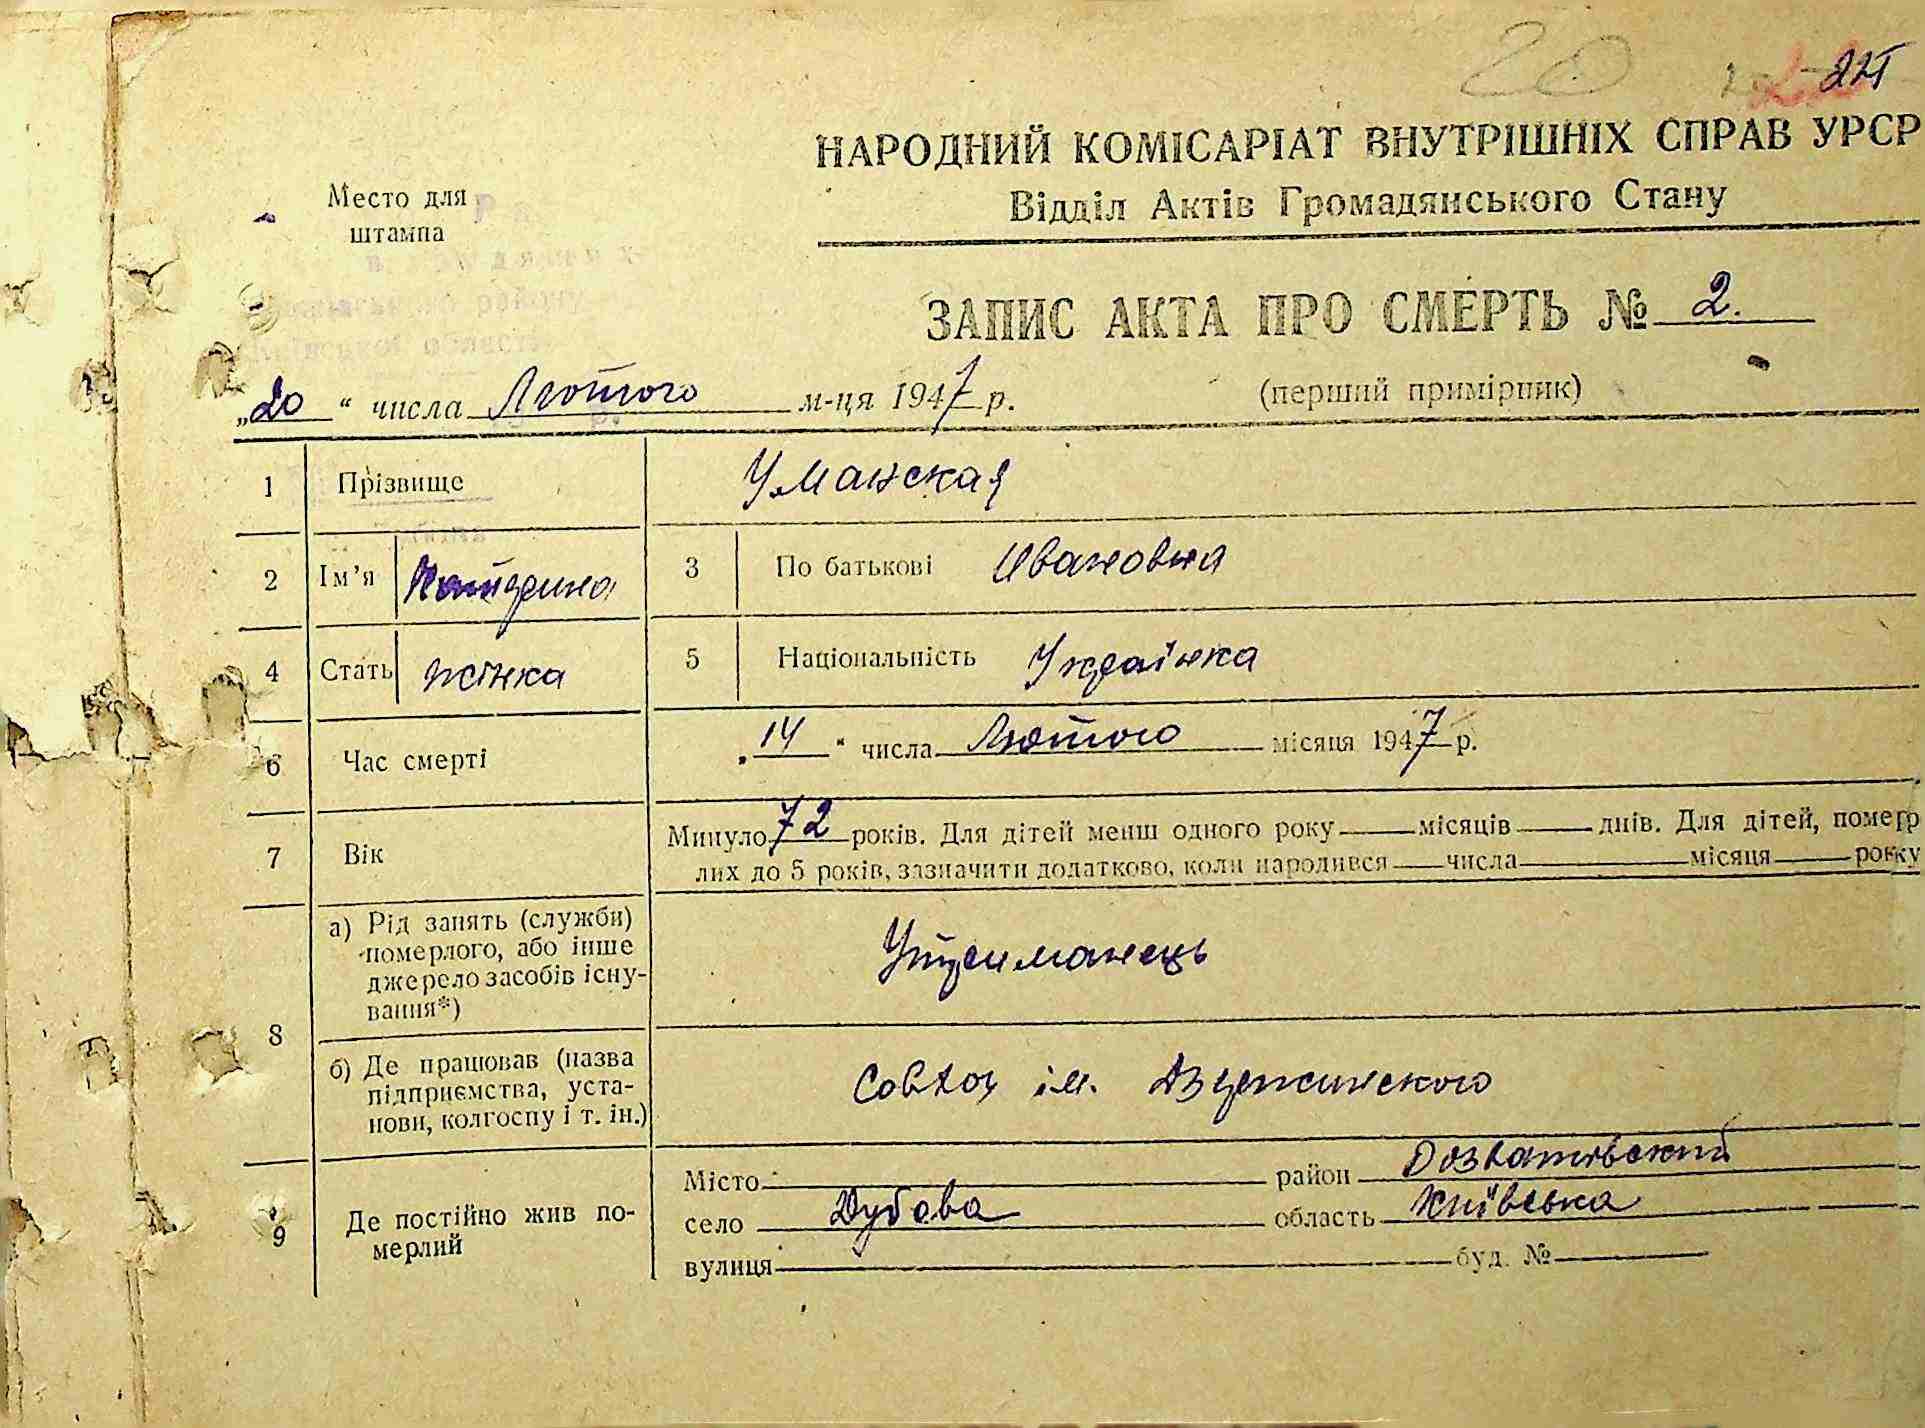 20
24
НАРОДНИЙ КОМІСАРІАТ ВНУТРІШНІХ СПРАВ УРСР
Відділ Актів Громадянського Стану
Место для
штампа
району
області
ЗАПИС АКТА ПРО СМЕРТЬ № 2.
„20“ числа Лютого м-ця 1947 р. (перший примірник)
1 Прізвище Уманская
2 Ім'я Катерина 3 По батькові Ивановна
4 Стать жінка 5 Національність Українка
6 Час смерті „14“ числа Лютого місяця 1947 р.
7 Вік Минуло 72 років. Для дітей менш одного року місяців днів. Для дітей, помер
лих до 5 років, зазначити додатково, коли народився числа місяця року
8 а) Рід занять (служби)
померлого, або інше
джерело засобів існу-
вання*) Утриманець
б) Де працював (назва
підприємства, уста-
нови, колгоспу і т. ін.) Совхоз ім. Дзержинского
9 Де постійно жив по-
мерлий
Місто район
село Дубова область Київська
вулиця буд. №